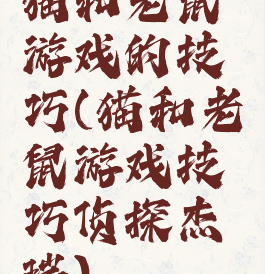 猫和老鼠
游戏的技
巧(猫和老
鼠游戏技
巧侦探杰
瑞)